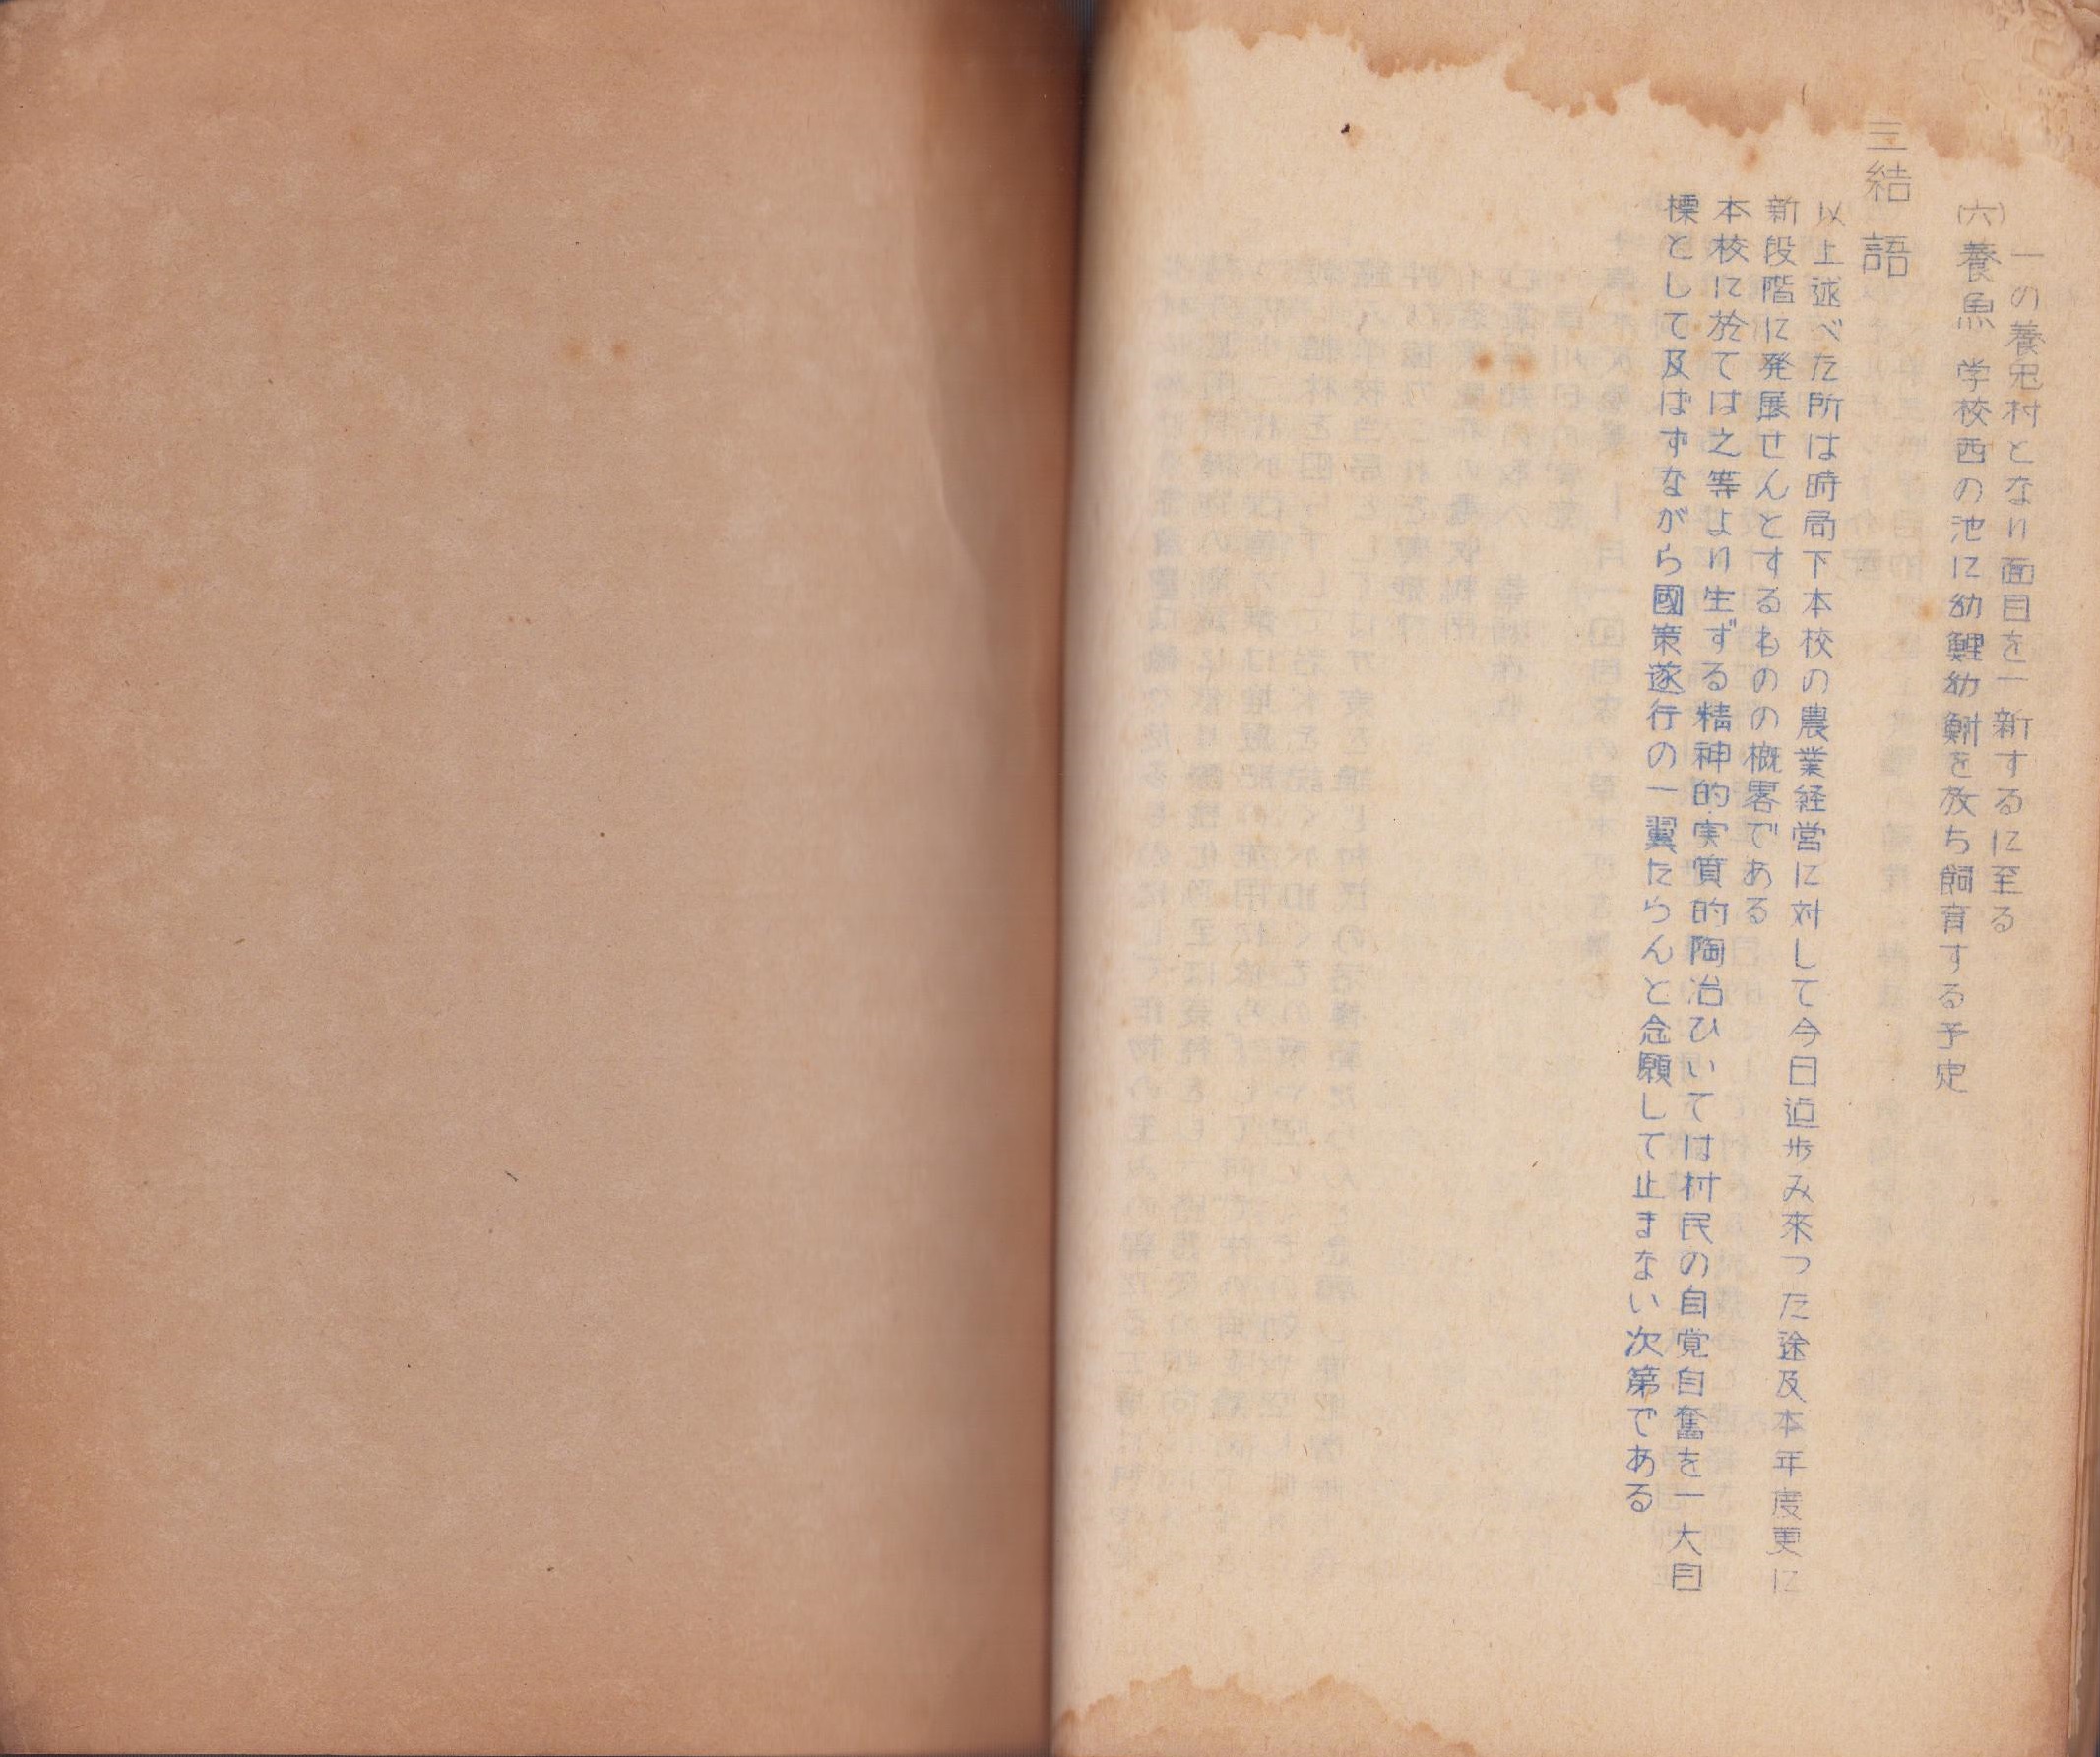 一の養兎村となり面目を一新するに至る
(六)養魚 学校西の池に幼鯉幼鮒を放ち飼育する予定
三結語
以上述べた所は時局下本校の農業経営に対して今日迠歩み來つた途及本年度更に
新段階に発展せんとするものの概畧である
本校に於ては之等より生ずる精神的実質的陶冶ひいては村民の自覚自奮を一大目
標として及ばずながら國策遂行の一翼たらんと念願して止まない次第である